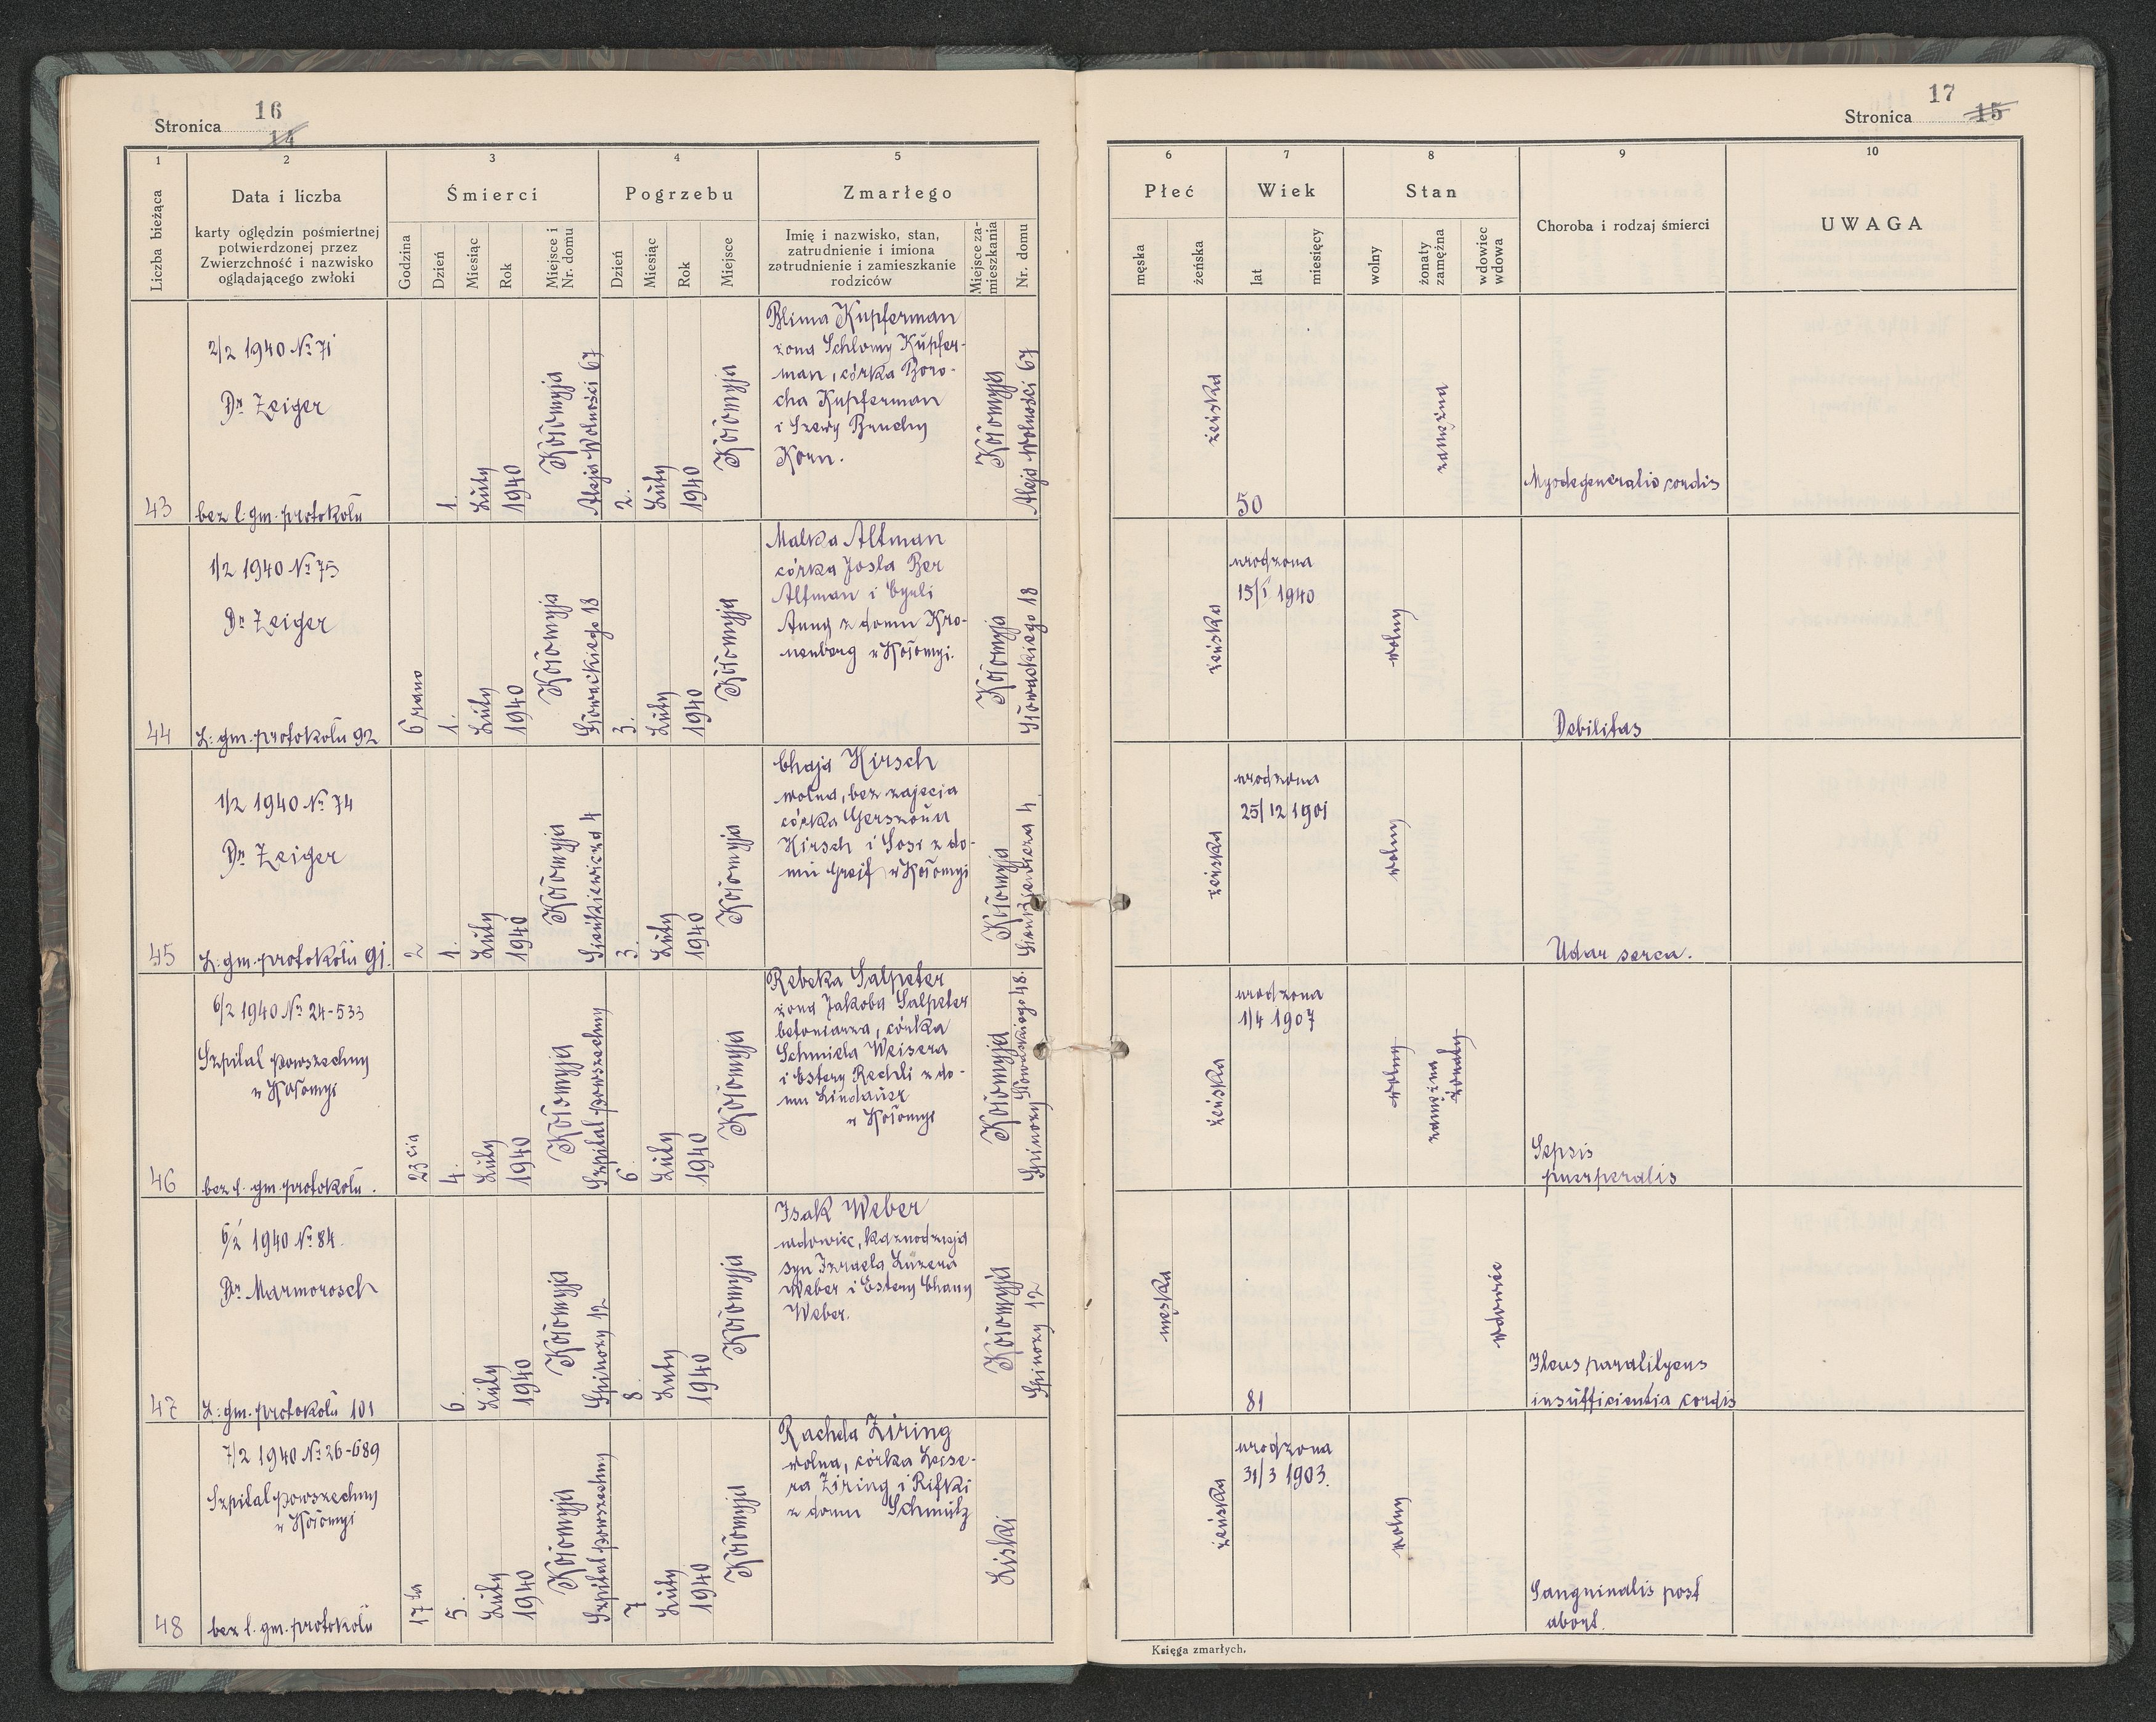 Stronica 16
14
1
2
3
4
5
Liczba bieżąca
Data i liczba
karty oględzin pośmiertnej
potwierdzonej przez
Zwierzchność i nazwisko
oglądającego zwłoki
Śmierci
Godzina
Dzień
Miesiąc
Rok
Miejsce i
Nr. domu
Pogrzebu
Dzień
Miesiąc
Rok
Miejsce
Zmarłego
Imię i nazwisko, stan,
zatrudnienie i imiona
zatrudnienie i zamieszkanie
rodziców
Miejsce za-
mieszkania
Nr. domu
43
2/2 1940 № 71
Dr Zeiger
bez l. gm. protokołu
1.
Luty
1940
Kołomyja
Aleja Wolności 67
2.
Luty
1940
Kołomyja
Blima Kupferman
żona Schlomy Kupfer-
man, córka Boro-
cha Kupferman
i Szewy Bruchy
Korn.
Kołomyja
Aleja Wolności 67
44
1/2 1940 № 75
Dr Zeiger
L: gm. protokołu 92
6 rano
1.
Luty
1940
Kołomyja
Słowackiego 18
3.
Luty
1940
Kołomyja
Malka Altman
córka Josla Ber
Altman i Cyuli
Anny z domu Kro-
nenberg w Kołomyi.
Kołomyja
Słowackiego 18
45
1/2 1940 № 74
Dr Zeiger
L: gm. protokołu 91.
2
1.
Luty
1940
Kołomyja
Sienkiewicza 4
3.
Luty
1940
Kołomyja
Chaja Hirsch
wolna, bez zajęcia
córka Gerszona
Hirsch i Sosi z do-
mu Greif w Kołomyi
Kołomyja
Sienkiewicza 4.
46
6/2 1940 № 24-533
Szpital powszechny
w Kołomyi
bez l. gm. protokołu.
23cia
4.
Luty
1940
Kołomyja
Szpital powszechny
6.
Luty
1940
Kołomyja
Rebeka Salpeter
żona Jakoba Salpeter
betoniarza, córka
Schmiela Weisera
i Estery Rechli z do-
mu Lindauer
w Kołomyi
Kołomyja
Słowackiego 48.
Spinozy
47
6/2 1940 № 84.
Dr Marmorosch
L: gm. protokołu 101
6.
Luty
1940
Kołomyja
Spinozy 12
8.
Luty
1940
Kołomyja
Isak Weber
wdowiec, kaznodzieja
syn Izraela Luzera
Weber i Estery Chany
Weber.
Kołomyja
Spinozy 12
48
7/2 1940 № 26-689
Szpital powszechny
w Kołomyi
bez l. gm. protokołu
17ta
5.
Luty
1940
Kołomyja
Szpital powszechny
7
Luty
1940
Kołomyja
Rachela Ziring
wolna, córka Leise-
ra Ziring i Rifki
z domu Schmutz
Liski
Stronica 17
15
6
7
8
9
10
Płeć
męska
żeńska
Wiek
lat
miesięcy
Stan
wolny
żonaty
zamężna
wdowiec
wdowa
Choroba i rodzaj śmierci
UWAGA
żeńska
50
zamężna
Myodegeneralio cordis
żeńska
urodzona
15/1 1940
wolny
Debilitas
żeńska
urodzona
25/12 1901
wolny
Udar serca.
żeńska
urodzona
1/4 1907
wolny
zamężna
żonaty
Sepsis
puerperalis
męska
81
wdowiec
Ileus paralilycus
insufficientia cordis
żeńska
urodzona
31/3 1903.
wolny
Sanguinalis post
abort.
Księga zmarłych.